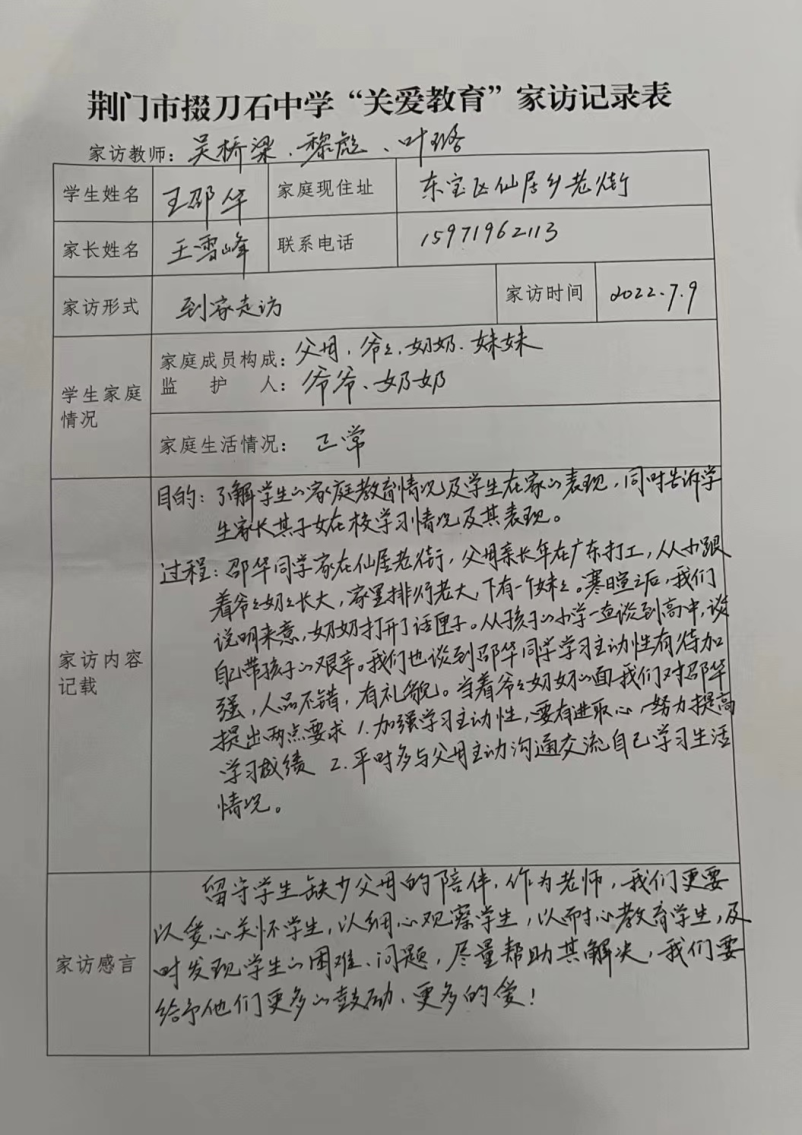 荆门市掇刀石中学“关爱教育”家访记录表
家访教师：吴桥梁、黎彪、叶璐
学生姓名 王邵华 家庭现住址 东宝区仙居乡老街
家长姓名 王雪峰 联系电话 15971962113
家访形式 到家走访 家访时间 2022.7.9
学生家庭情况
家庭成员构成：父母、爷々、奶奶、妹妹
监护人：爷爷、奶奶
家庭生活情况：正常
家访内容记载
目的：了解学生的家庭教育情况及学生在家的表现，同时告诉学
生家长其子女在校学习情况及其表现。
过程：邵华同学家在仙居老街，父母亲长年在广东打工，从小跟
着爷々奶々长大，家里排行老大，下有一个妹々。寒暄之后，我们
说明来意，奶奶打开了话匣子。从孩子的小学一直谈到高中，谈
自己带孩子的艰辛。我们也谈到邵华同学学习主动性有待加
强，人品不错，有礼貌。当着爷々奶奶的面我们对邵华
提出两点要求 1.加强学习主动性，要有进取心，努力提高
学习成绩 2.平时多与父母主动沟通交流自己学习生活
情况。
家访感言
留守学生缺少父母的陪伴，作为老师，我们更要
以爱心关怀学生，以细心观察学生，以耐心教育学生，及
时发现学生的困难、问题，尽量帮助其解决，我们要
给予他们更多的鼓励、更多的爱！